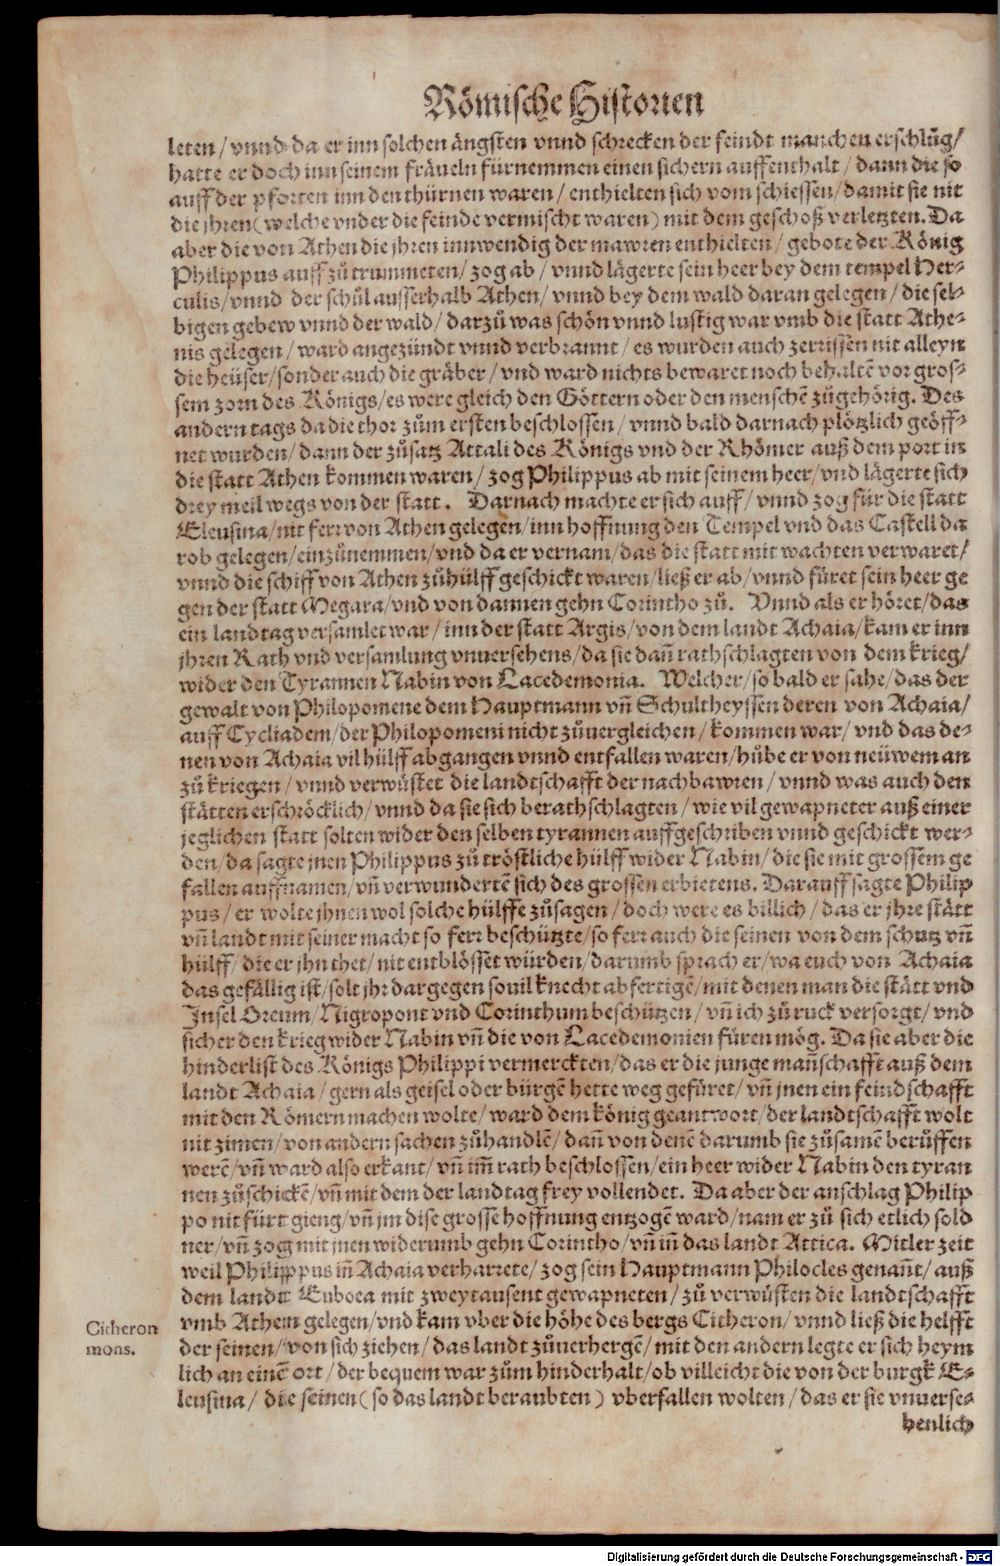 Römische Historien
leten/ vnnd da er inn solchen ängsten vnnd schrecken der feindt manchen erschlůg/
hatte er doch inn seinem fräueln fürnemmen einen sichern auffenthalt/ dann die so
auff der pforten inn den thürnen waren/ enthielten sich vom schiessen/ damit sie nit
die jhren (welche vnder die feinde vermischt waren) mit dem geschoß verletzten. Da
aber die von Athen die jhren innwendig der mawren enthielten/ gebote der König
Philippus auff zů trummeten/ zog ab/ vnnd lägerte sein heer bey dem tempel Her-
culis/ vnnd der schůl ausserhalb Athen/ vnnd bey dem wald daran gelegen/ die sel-
bigen gebew vnnd der wald/ darzů was schön vnnd lustig war vmb die statt Athe-
nis gelegen/ ward angezündt vnnd verbrannt/ es wurden auch zerrissen nit alleyn
die heüser/ sonder auch die gräber/ vnd ward nichts bewaret noch behaltẽ vor gros-
sem zorn des Königs/ es were gleich den Göttern oder den menschẽ zůgehörig. Des
andern tags da die thor zům ersten beschlossen/ vnnd bald darnach plötzlich geöff-
net wurden/ dann der zůsatz Attali des Königs vnd der Rhömer auß dem port in
die statt Athen kommen waren/ zog Philippus ab mit seinem heer/ vnd lägerte sich
drey meil wegs von der statt. Darnach machte er sich auff/ vnnd zog für die statt
Eleusina/ nit ferr von Athen gelegen/ inn hoffnung den Tempel vnd das Castell da
rob gelegen/ einzůnemmen/ vnd da er vernam/ das die statt mit wachten verwaret/
vnnd die schiff von Athen zůhülff geschickt waren/ ließ er ab/ vnnd füret sein heer ge
gen der statt Megara/ vnd von dannen gehn Corintho zů. Vnnd als er höret/ das
ein landtag versamlet war/ inn der statt Argis/ von dem landt Achaia/ kam er inn
jhren Rath vnd versamlung vnuersehens/ da sie dañ rathschlagten von dem krieg/
wider den Tyrannen Nabin von Lacedemonia. Welcher/ so bald er sahe/ das der
gewalt von Philopomene dem Hauptmann vñ Schultheyssen deren von Achaia/
auff Cycliadem/ der Philopomeni nicht zůuergleichen/ kommen war/ vnd das de-
nen von Achaia vil hülff abgangen vnnd entfallen waren/ hůbe er von neüwem an
zů kriegen/ vnnd verwüstet die landtschafft der nachbawren/ vnnd was auch den
stätten erschröcklich/ vnnd da sie sich berathschlagten/ wie vil gewapneter auß einer
jeglichen statt solten wider den selben tyrannen auffgeschriben vnnd geschickt wer-
den/ da sagte jnen Philippus zů tröstliche hülff wider Nabin/ die sie mit grossem ge
fallen auffnamen/ vñ verwundertẽ sich des grossen erbietens. Darauff sagte Philip
pus/ er wolte jhnen wol solche hülffe zůsagen/ doch were es billich/ das er jhre stätt
vñ landt mit seiner macht so ferr beschützte/ so ferr auch die seinen von dem schutz vñ
hülff/ die er jhn thet/ nit entblösset würden/ darumb sprach er/ wa euch von Achaia
das gefällig ist/ solt jhr dargegen souil knecht abfertigẽ/ mit denen man die stätt vnd
Insel Oreum/ Nigropont vnd Corinthum beschützen/ vñ ich zů ruck versorgt/ vnd
sicher den krieg wider Nabin vñ die von Lacedemonien füren mög. Da sie aber die
hinderlist des Königs Philippi vermerckten/ das er die junge mañschafft auß dem
landt Achaia/ gern als geisel oder bürgẽ hette weg gefüret/ vñ jnen ein feindschafft
mit den Römern machen wolte/ ward dem könig geantwort/ der landtschafft wolt
nit zimen/ von andern sachen zůhandlẽ/ dañ von denẽ darumb sie zůsamẽ berůffen
werẽ/ vñ ward also erkant/ vñ im̃ rath beschlossen/ ein heer wider Nabin den tyran
nen zůschickẽ/ vñ mit dem der landtag frey vollendet. Da aber der anschlag Philip
po nit fürt gieng/ vñ jm dise grosse hoffnung entzogẽ ward/ nam er zů sich etlich sold
ner/ vñ zog mit jnen widerumb gehn Corintho/ vñ iñ das landt Attica. Mitler zeit
weil Philippus iñ Achaia verharrete/ zog sein Hauptmann Philocles genañt/ auß
dem landt Euboea mit zweytausent gewapneten/ zů verwüsten die landtschafft
vmb Athem gelegen/ vnd kam vber die höhe des bergs Citheron/ vnnd ließ die helfft
der seinen/ von sich ziehen/ das landt zůuerhergẽ/ mit den andern legte er sich heym
lich an einẽ ort/ der bequem war zům hinderhalt/ ob villeicht die von der burgk E-
leusina/ die seinen (so das landt beraubten) vberfallen wolten/ das er sie vnuerse-
henlich
Citheron
mons.
Digitalisierung gefördert durch die Deutsche Forschungsgemeinschaft - DFG